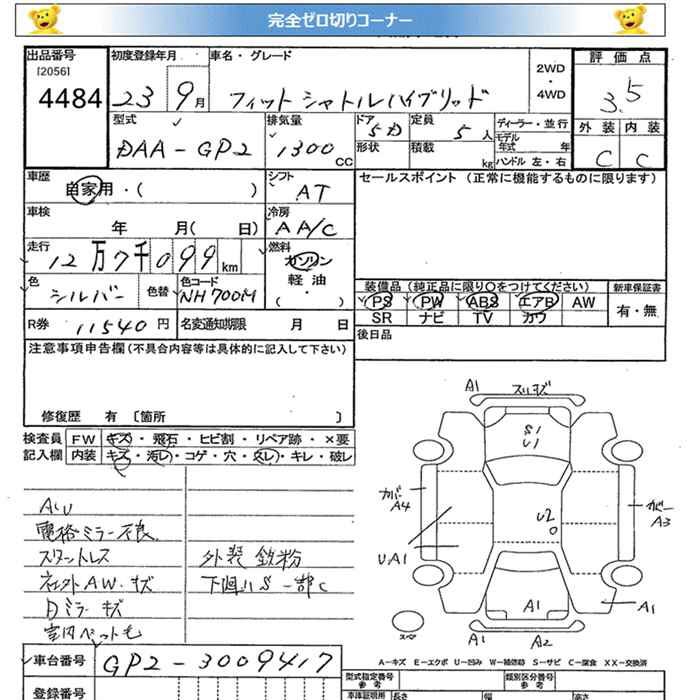 完全ゼロ切りコーナー
出品番号 初度登録年月 車名・グレード 2WD ・ 4WD 評価点
[2056]
4484 23 9月 フィットシャトルハイブリッド 3.5
型式 排気量 ドア 定員 ディーラー・並行 外装 内装
DAA-GP2 1300CC 5D 5人 モデル年式 年 C C
形状 積載 kg ハンドル 左・右
車歴 シフト セールスポイント (正常に機能するものに限ります)
自家用・( ) AT
車検 冷房
年 月( 日) AA/C
走行 燃料
12万7千099km ガソリン
軽油
色 色替 色コード ・
シルバー NH700M ( )
装備品 (純正品に限り○をつけてください) 新車保証書
PS PW ABS エアB AW 有・無
SR ナビ TV カワ
R券 11540円 名変通知期限 月 日
後日品
注意事項申告欄(不具合内容等は具体的に記入して下さい)
修復歴 有 [箇所 ]
検査員 FW キズ・飛石・ヒビ割・リペア跡・×要
記入欄 内装 キズ・汚レ・コゲ・穴・スレ・キレ・破レ
電格ミラー不良
スタットレス 外装鉄粉
社外AW・キズ 下廻りS一部C
Dミラーキズ
室内ペット毛
車台番号 GP2-3009417
登録番号
A1 スリキズ
S1
U1
カバー
A4
カバー
A3
U2
UA1
A1
A1
スペア
A1 A2
A-キズ E-エクボ U-凹み W-補修跡 S-サビ C-腐食 XX-交換済
型式指定番号 類別区分番号
参考 参考
車庫証明用 長さ 幅 高さ